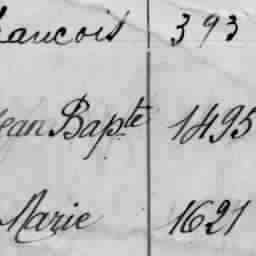 rancois 393
Jean Bapte 1495
Marie 1621